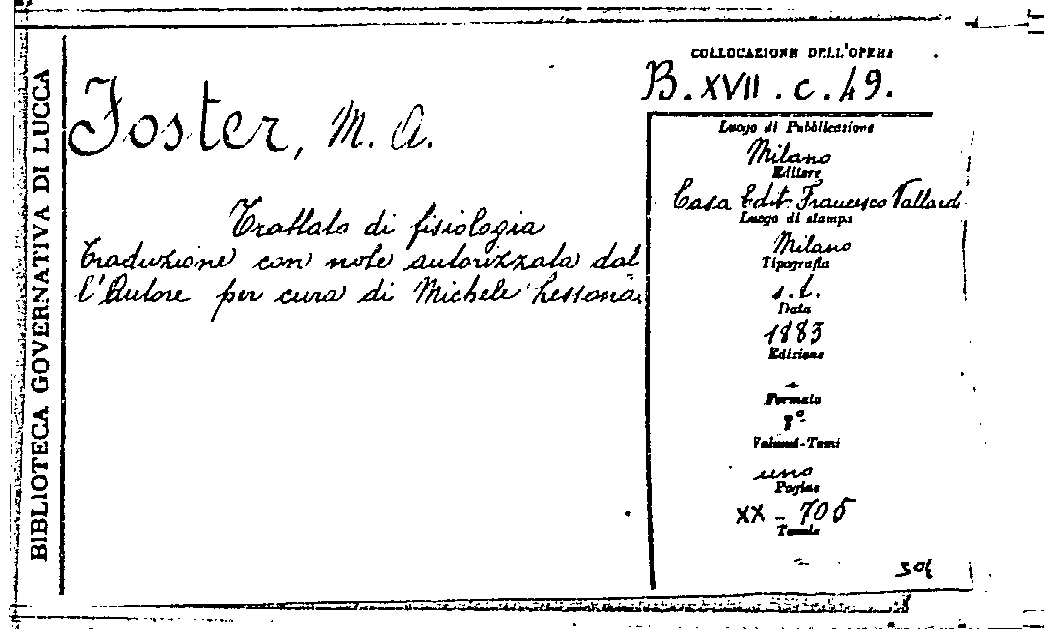 BIBLIOTECA GOVERNATIVA DI LUCCA
Foster, M. A.
Trattato di fisiologia
Traduzione con note autorizzata dal
l'Autore per cura di Michele Lessona.
COLLOCAZIONE DELL'OPERA
B. XVII. c. 49.
Luogo di Pubblicazione
Milano
Editore
Casa Edit. Francesco Vallardi
Luogo di stampa
Milano
Tipografia
s. t.
Data
1883
Edizione
-
Formato
8°
Volumi-Tomi
uno
Pagine
XX - 705
Tavole
-